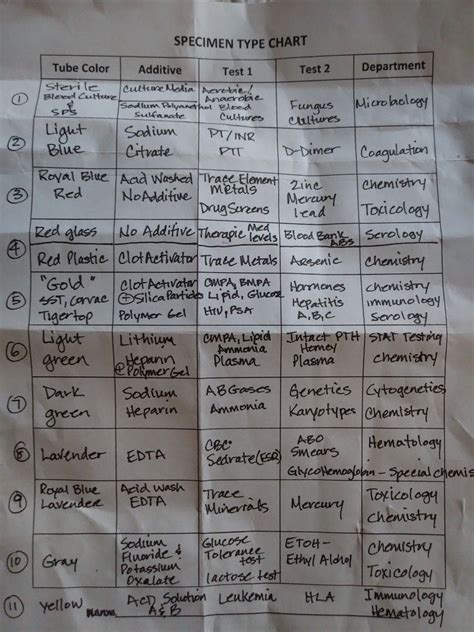 SPECIMEN TYPE CHART
Tube Color Additive Test 1 Test 2 Department
1 Sterile Blood Culture & SPS Culture Media Sodium Polyanethol Sulfanate Aerobic/ Anaerobic Blood Cultures Fungus Cultures
2 Light Blue Sodium Citrate PT/INR PTT D-Dimer Coagulation
3 Royal Blue Red Acid Washed No Additive Trace Element Metals Drug Screens Zinc Mercury Lead Chemistry Toxicology
4 Red glass No Additive Med levels Blood Bank ABS Serology
Red Plastic Clot Activator Trace Metals Arsenic Chemistry
5 "Gold" SST, Tigertop Clot Activator Silica Particles Polymer Gel CMPA, BMPA Lipid, Glucose HIV, PSA Hormones Hepatitis A, B, C Chemistry immunology serology
6 Light green Lithium Heparin Polymer Gel CMPA, Lipid Ammonia Plasma Intact PTH Plasma STAT Testing Chemistry
7 Dark green Sodium Heparin AB Gases Ammonia Genetics Karyotypes Cytogenetics Chemistry
8 Lavender EDTA CBC Sedrate (ESR) ABO Smears Hematology
- Special
9 Royal Blue Lavender Acid Wash EDTA Trace Minerals Mercury Toxicology Chemistry
10 Gray Sodium Fluoride & Potassium Oxalate Glucose Tolerance test lactose test ETOH- Chemistry Toxicology
11 Yellow ACD Solution A & B Leukemia HLA Immunology Hematology